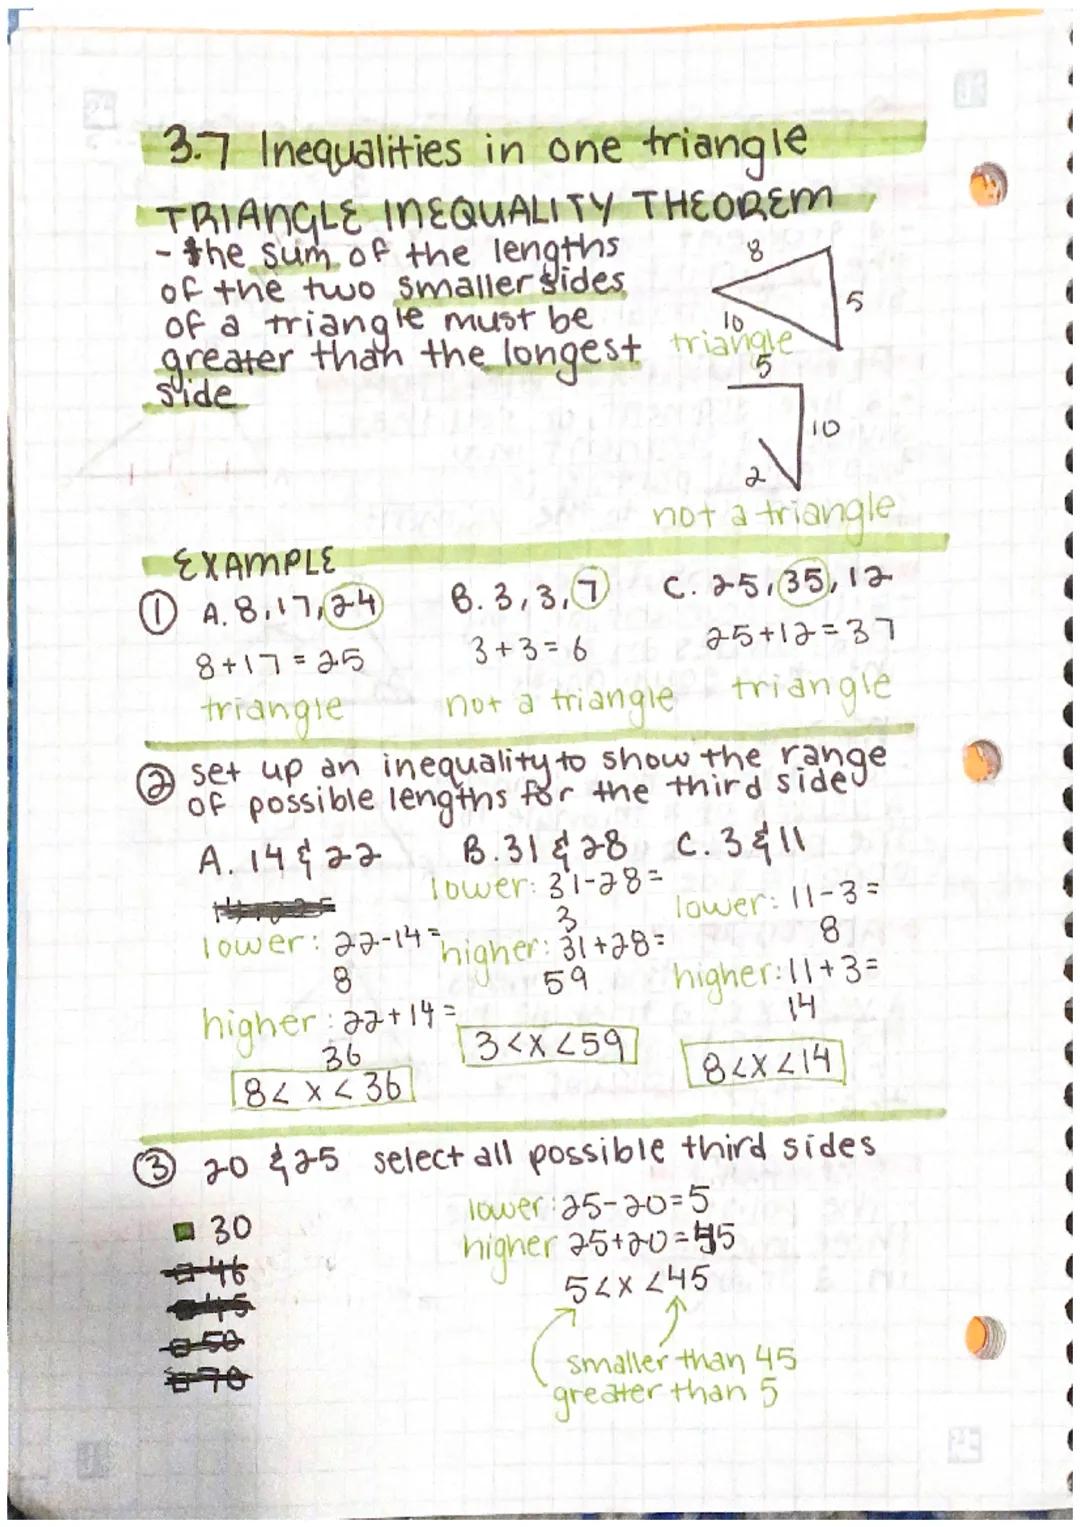 3.7 Inequalities in one triangle
TRIANGLE INEQUALITY THEOREM
- the sum of the lengths
of the two smaller sides
of a triangle must be
greater than the longest
side
8
5
10
triangle
5
10
2
not a triangle
EXAMPLE
① A. 8, 17, 24
8+17=25
triangle
B. 3, 3, 7
3+3=6
not a triangle
C. 25, 35, 12
25+12=37
triangle
② set up an inequality to show the range
of possible lengths for the third side
A. 14 & 22
lower: 22-14=
8
higher: 22+14=
36
8< x < 36
B. 31 & 28
lower: 31-28=
3
higher: 31+28=
59
3<x<59
C. 3 & 11
lower: 11-3=
8
higher: 11+3=
14
8<x<14
③ 20 & 25 select all possible third sides
30
46
45
50
70
lower: 25-20=5
higher 25+20=45
5<x<45
smaller than 45
greater than 5